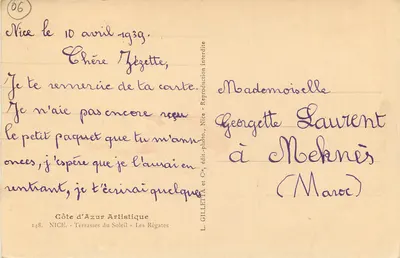 06
Nice le 10 avril 1939.
Chère Zézette,
Je te remercie de ta carte.
Je n'aie pas encore reçu
le petit paquet que tu m'ann
onces, j'espère que je l'aurai en
rentrant, je t'écrirai quelques
Côte d'Azur Artistique
148. NICE. - Terrasses du Soleil - Les Régates
L. GILLETTA et Cie, édit.-photo., Nice - Reproduction interdite
Mademoiselle
Georgette Laurent
à Meknès
(Maroc)